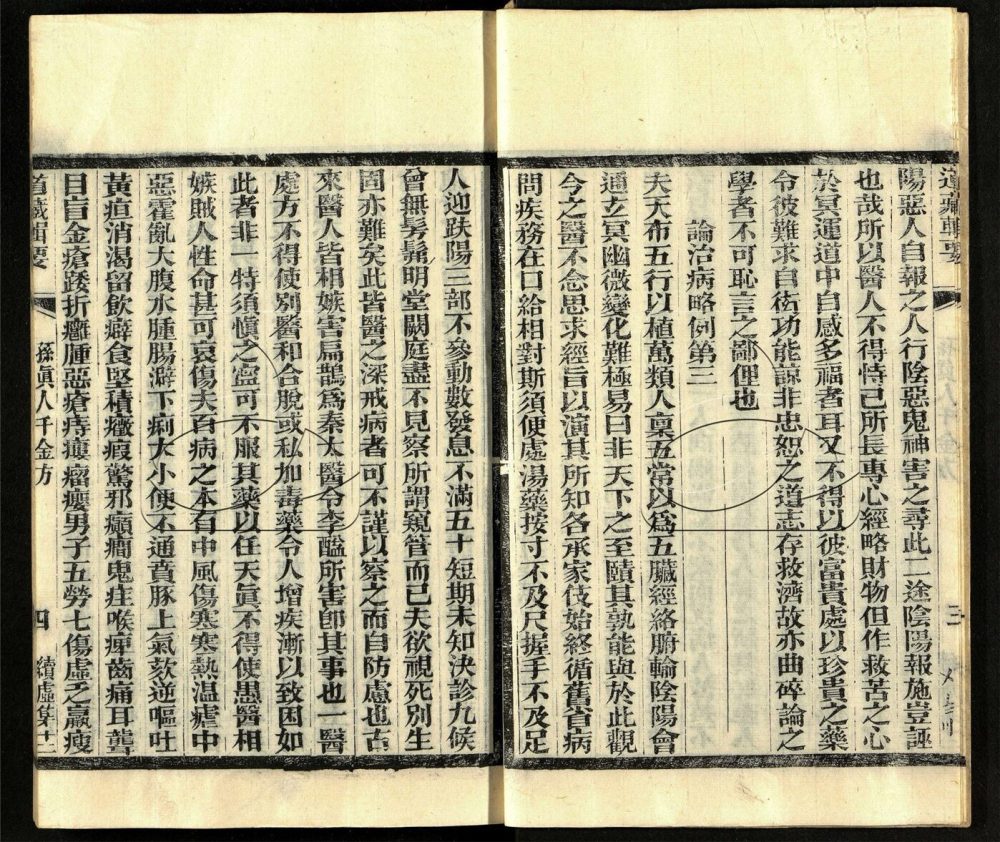 道藏輯要
三
陽惡人自報之人行陰惡鬼神害之尋此二途陰陽報施豈誣
也哉所以醫人不得恃己所長專心經略財物但作救苦之心
於冥運道中自感多福者耳又不得以彼富貴處以珍貴之藥
令彼難求自衒功能諒非忠恕之道志存救濟故亦曲碎論之
學者不可恥言之鄙俚也
論治病略例第三
夫天布五行以植萬類人稟五常以為五臟經絡腑輸陰陽會
通玄冥幽微變化難極易曰非天下之至賾其孰能與於此觀
今之醫不念思求經旨以演其所知各承家伎始終循舊省病
問疾務在口給相對斯須便處湯藥按寸不及尺握手不及足
人迎趺陽三部不參動數發息不滿五十短期未知決診九候
曾無髣髴明堂闕庭盡不見察所謂窺管而已夫欲視死別生
固亦難矣此皆醫之深戒病者可不謹以察之而自防慮也古
來醫人皆相嫉害扁鵲為秦太醫令李醯所害卽其事也一醫
處方不得使別醫和合脫或私加毒藥令人增疾漸以致困如
此者非一特須愼之寧可不服其藥以任天眞不得使愚醫相
嫉賊人性命甚可哀傷夫百病之本有中風傷寒寒熱溫瘧中
惡霍亂大腹水腫腸澼下痢大小便不通賁豚上氣欬逆嘔吐
黃疸消渴留飲癖食堅積癥瘕驚邪癲癇鬼疰喉痺齒痛耳聾
目盲金瘡踒折癰腫惡瘡痔瘻瘤癭男子五勞七傷虛乏羸瘦
道藏輯要
孫眞人千金方
四
續虛集十二